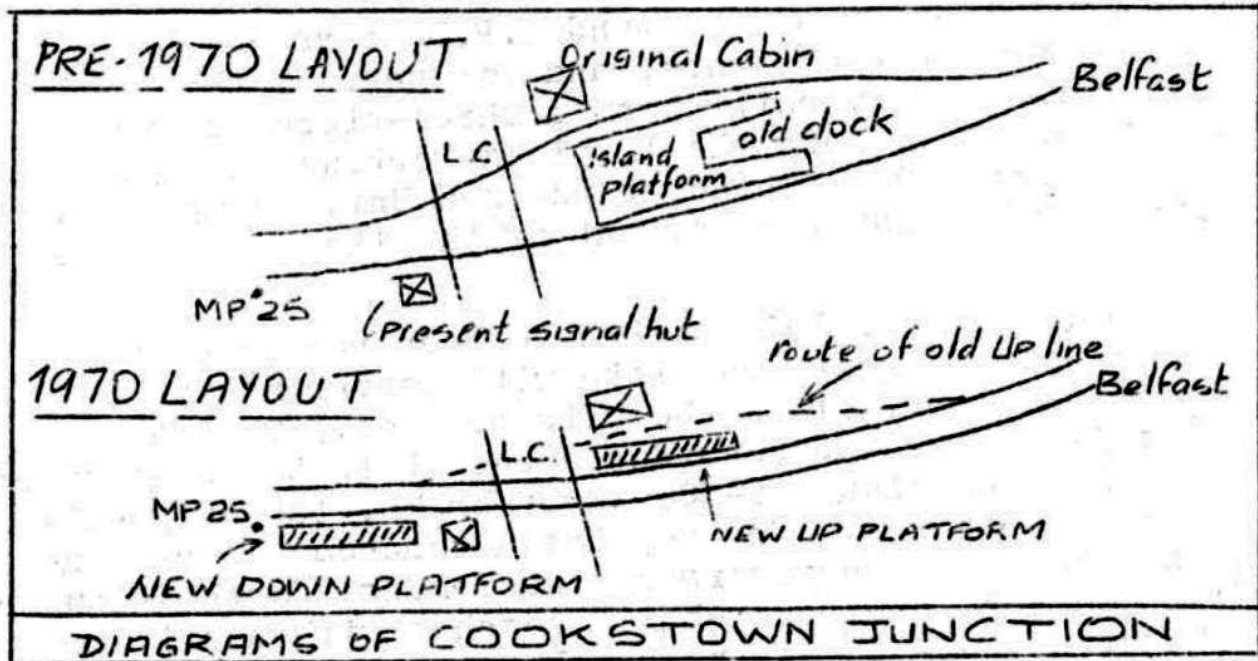 PRE-1970 LAYOUT
Original Cabin
Belfast
L.C
old clock
island
platform
MP 25
(present signal hut
1970 LAYOUT
route of old UP line
Belfast
L.C.
MP 25
NEW UP PLATFORM
NEW DOWN PLATFORM
DIAGRAMS OF COOKSTOWN JUNCTION